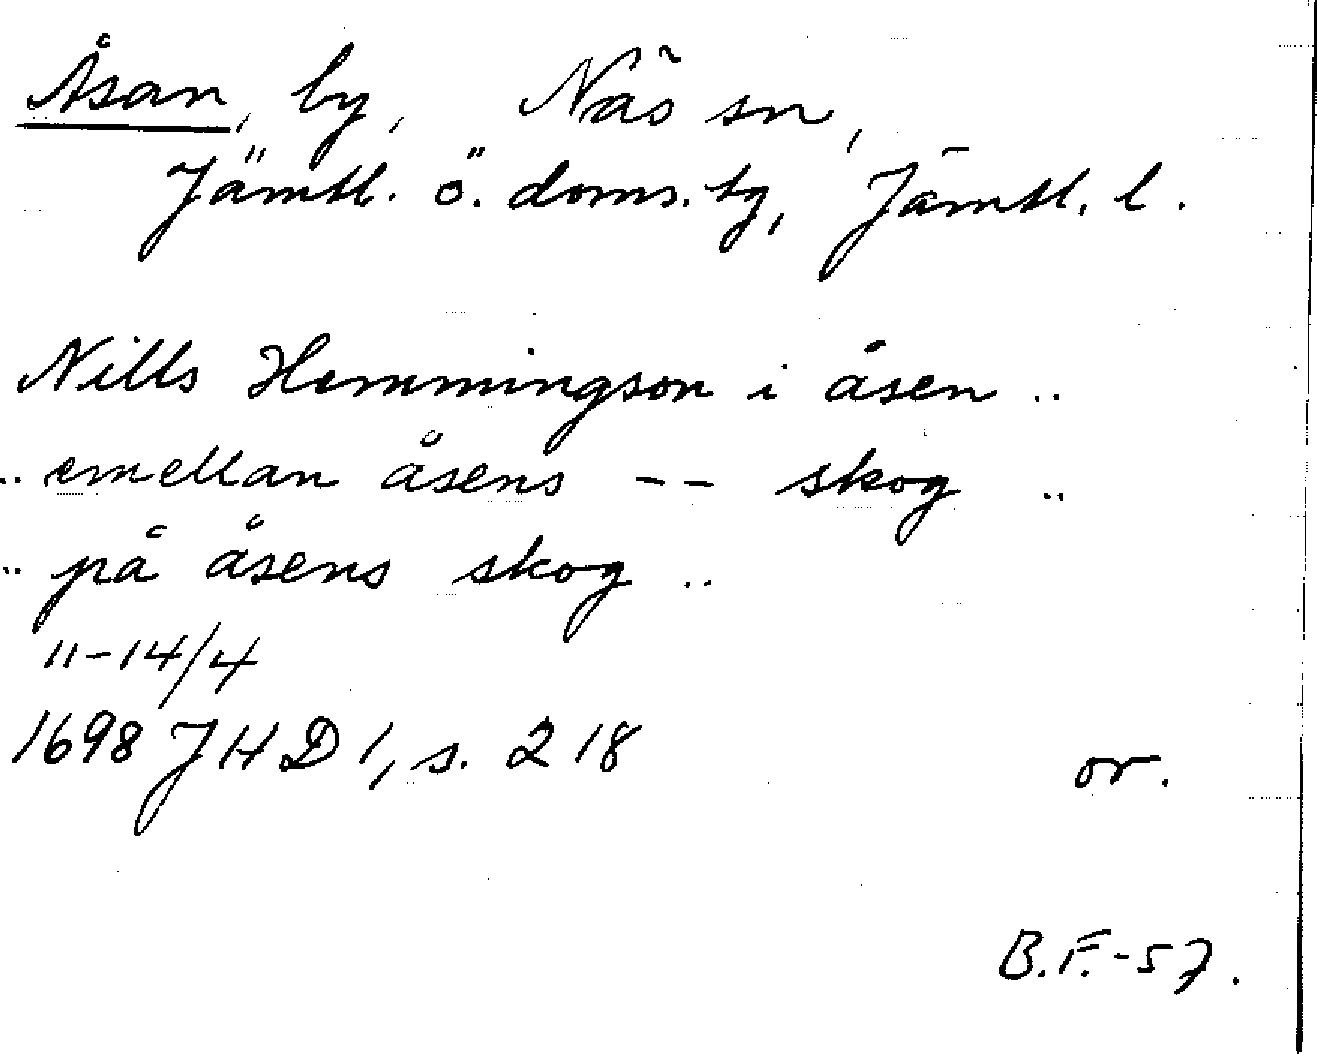 Åsan, by, Näs sn,
Jämtl. ö. doms. tg, Jämtl. l.
Nills Hemmingson i åsen ..
.. emellan åsens -- skog ..
.. på åsens skog ..
11-14/4
1698 JHD 1, s. 218 or.
B.F.-57.